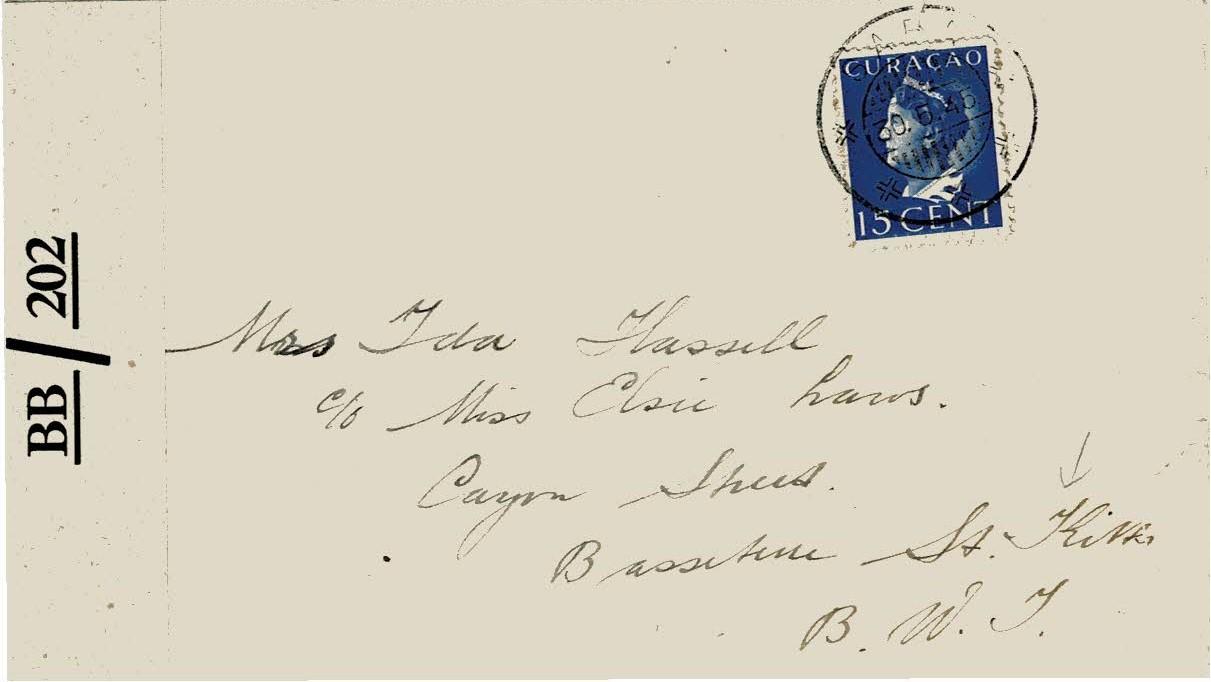 CURAÇAO
30.6.45
15 CENT
BB / 202
Mrs Ida Hassell
c/o Miss Elsie Laws.
Cayon Street.
Basseterre St. Kitts
B. W. I.